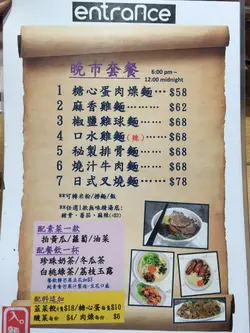 entrance
晚市套餐
6:00 pm –
12:00 midnight
1 糖心蛋肉燥麵… $58
2 麻香雞麵… $62
3 椒鹽雞球麵… $68
4 口水雞麵(辣)… $68
5 秘製排骨麵… $68
6 燒汁牛肉麵… $68
7 日式叉燒麵… $78
配素菜一款
拍黃瓜/蘿蔔/油菜
配餐飲一杯
珍珠奶茶/冬瓜茶
白桃綠茶/荔枝玉露
配料追加
$18/糖心蛋 $10
$4/肉燥 $6